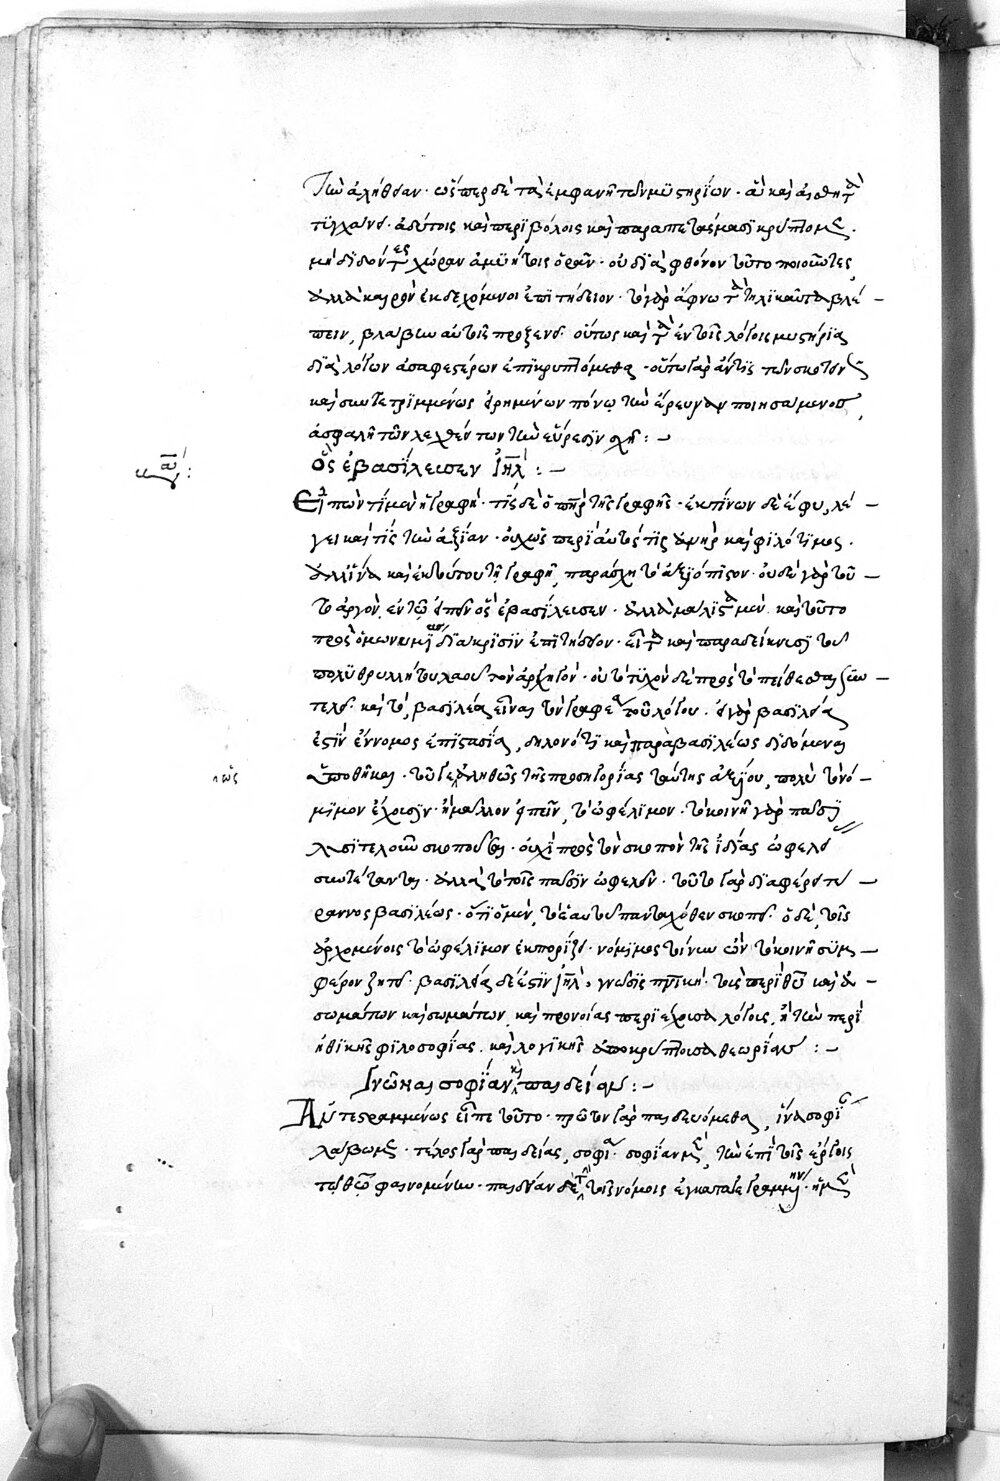 τὴν ἀλήθειαν· ὥσπερ δὲ τὰ ἐμφανῆ τῶν μυστηρίων· ἃ καὶ αἰσθητὰ
τυγχάνει· ἀδύτοις καὶ περιβόλοις καὶ παραπετάσμασι κρύπτομεν·
μὴ διδόντες χώραν ἀμυήτοις ὁρᾶν· οὐ διὰ φθόνον τοῦτο ποιοῦντες,
ἀλλὰ καιρὸν ἐκδεχόμενοι ἐπιτήδειον· τὸ γὰρ ἄφνω τὰ τηλικαῦτα βλέ–
πειν, βλάβην αὐτοῖς προξενεῖ· οὕτως καὶ τὰ ἐν τοῖς λόγοις μυστήρια
διὰ λόγων ἀσαφεστέρων ἐπικρυπτόμεθα· οὕτω γὰρ ἄν τις τῶν σκοτεινῶς
καὶ συντετριμμένως εἰρημένων πόνῳ τὴν ἔρευναν ποιησάμενος,
ἀσφαλῆ τῶν λεχθέντων τὴν εὕρεσιν σχῇ:–
ὃς ἐβασίλευσεν ἐν Ἰηλ:–
Εἰπὼν τίμιον ἡ γραφὴ· τίς δὲ ὁ πηρ τῆς γραφῆς· ἐκ τίνων δὲ ἔφυ, λέ–
γει καὶ τίς τὴν ἀξίαν· οὐχ ὡς περὶ αὐτός τις ἀνὴρ καὶ φιλότιμος·
ἀλλ' ἵνα καὶ ἐκ τούτου τῇ γραφῇ, παράσχῃ τὸ ἀξιόπιστον· οὐδὲ γὰρ τοῦ–
το ἀργὸν, ἐν τῷ εἰπεῖν ὃς ἐβασίλευσεν· ἀλλὰ μάλιστα μὲν καὶ τοῦτο
πρὸς ὁμωνυμίας διάκρισιν ἐπιτήδειον· εἶτα καὶ παραδείκνυσι τοῦ
πολυθρυλλήτου λαοῦ τὸν ἀρχηγόν· οὐ τὸ τυχὸν δὲ πρὸς τὸ πείθεσθαι συν–
τελεῖ· καὶ τὸ, βασιλέα εἶναι τὸν γραφέα τοῦ λόγου· εἰ γὰρ βασιλεία
ἐστὶν ἔννομος ἐπιστασία, δηλονότι καὶ παρὰ βασιλέως διδόμεναι
ὑποθῆκαι· τοῦ γε ἀληθῶς τῆς προσηγορίας ταύτης ἀξίου, πολὺ τὸ νό–
μιμον ἔχουσιν· ἢ μᾶλλον εἰπεῖν, τὸ ὠφέλιμον· τὸ κοινῇ γὰρ πᾶσι
λυσιτελοῦν σκοποῦσαι· οὐχὶ πρὸς τὸν σκοπὸν τῆς ἰδίας ὠφελείας
συντέτανται· ἀλλὰ τὸ τοῖς πᾶσιν ὠφελεῖν· τοῦτο γὰρ διαφέρει τύ–
ραννος βασιλέως· ὅτι ὁ μὲν, τὸ ἑαυτοῦ πανταχόθεν σκοπεῖ· ὁ δὲ, τοῖς
ἀρχομένοις τὸ ὠφέλιμον ἐκπορίζει· νόμιμος τοίνυν ὢν τὸ κοινῇ συμ–
φέρον ζητεῖ· βασιλεία δέ ἐστιν Ἰηλ, γνῶσις πνικὴ· τοὺς περὶ θυ καὶ ἀ–
σωμάτων καὶ σωμάτων, καὶ προνοίας περιέχουσα λόγους, ἢ τὴν περὶ
ἠθικῆς φιλοσοφίας, καὶ λογικῆς ἀποκρύπτουσα θεωρίαν:–
Γνῶναι σοφίαν καὶ παιδείαν:–
Ἀντεστραμμένως εἶπε τοῦτο· πρῶτον γὰρ παιδευόμεθα, ἵνα σοφίαν
λάβωμεν· τέλος γὰρ παιδείας, σοφία· σοφίαν μὲν, τὴν ἐπὶ τοῖς ἔργοις
τοῦ θυ φαινομένην· παιδείαν δὲ τὴν τοῖς νόμοις ἐγκαταγεγραμμένην· ἡμεῖς